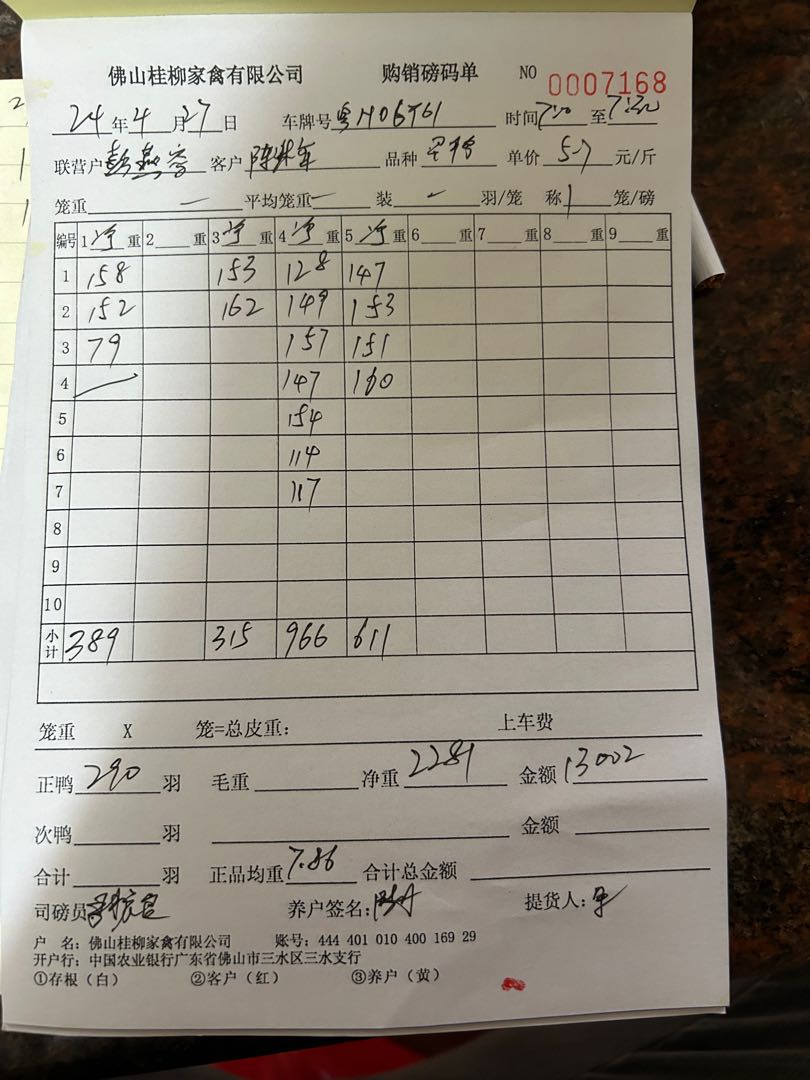 佛山桂柳家禽有限公司 购销磅码单 NO 0007168
24年4月27日 车牌号 粤H06T61 时间7:10至7:30
联营户 客户 品种 单价 5.7 元/斤
笼重 — 平均笼重 — 装 — 羽/笼 称 1 笼/磅
编号 1净重 2重 3净重 4净重 5净重 6重 7重 8重 9重
1 158 153 128 147
2 152 162 149 153
3 79 157 151
4 147 160
5 154
6 114
7 117
8
9
10
小计 389 315 966 611
笼重 X 笼=总皮重: 上车费
正鸭 290 羽 毛重 净重 2281 金额 13002
次鸭 羽 金额
合计 羽 正品均重 7.86 合计总金额
司磅员 养户签名: 提货人:
户 名: 佛山桂柳家禽有限公司 账号: 444 401 010 400 169 29
开户行: 中国农业银行广东省佛山市三水区三水支行
①存根(白) ②客户(红) ③养户(黄)